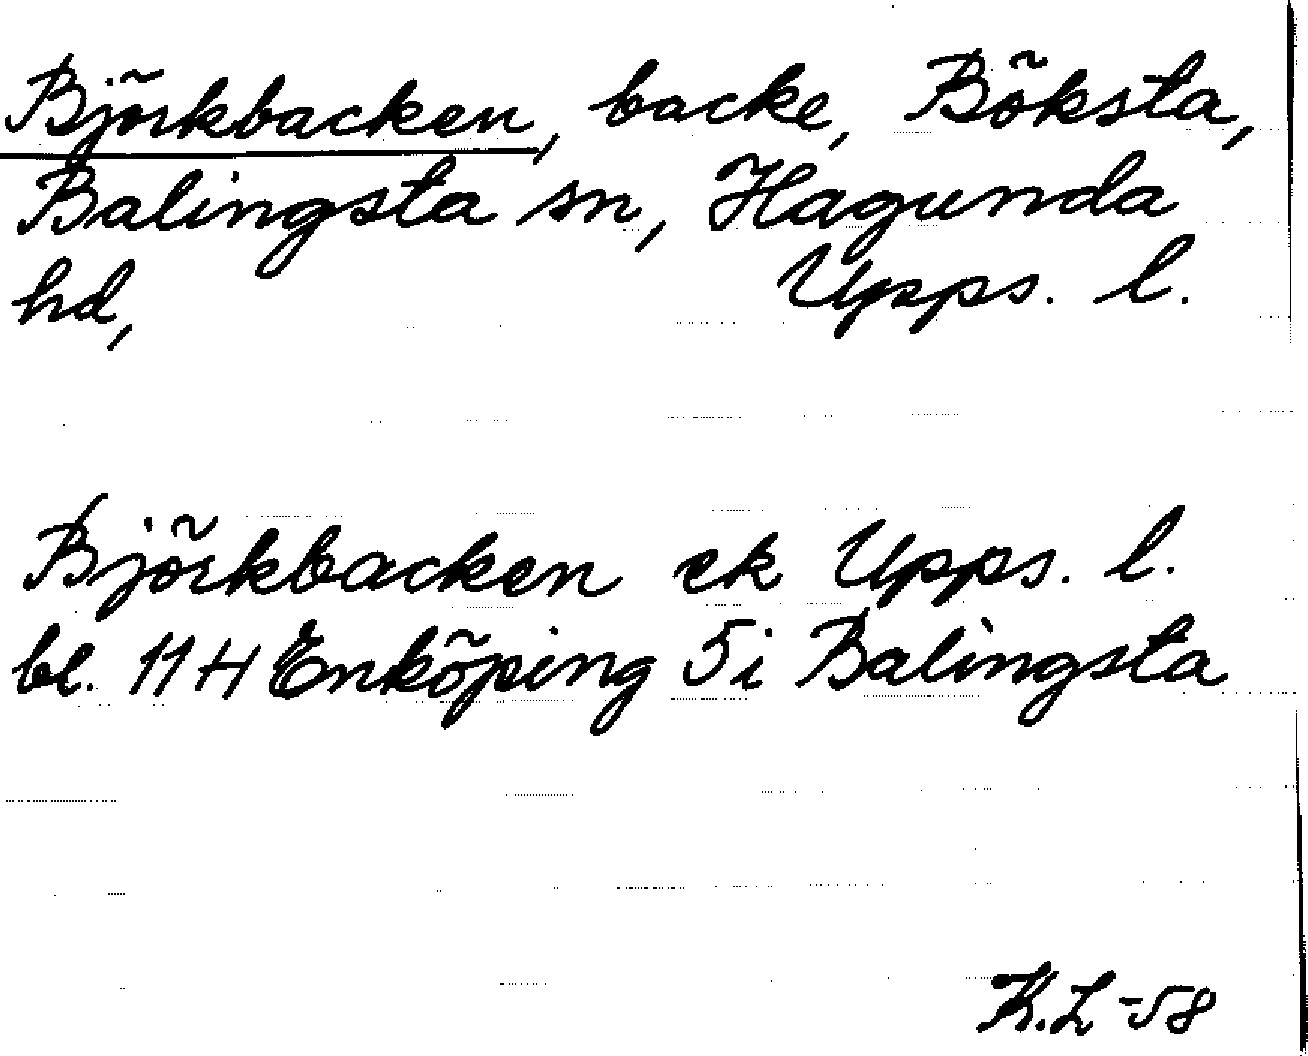 Björkbacken, backe, Böksta,
Balingsta sn, Hagunda
hd, Upps. l.
Björkbacken ek Upps. l.
bl. 11 H Enköping 5i Balingsta
K.L -58